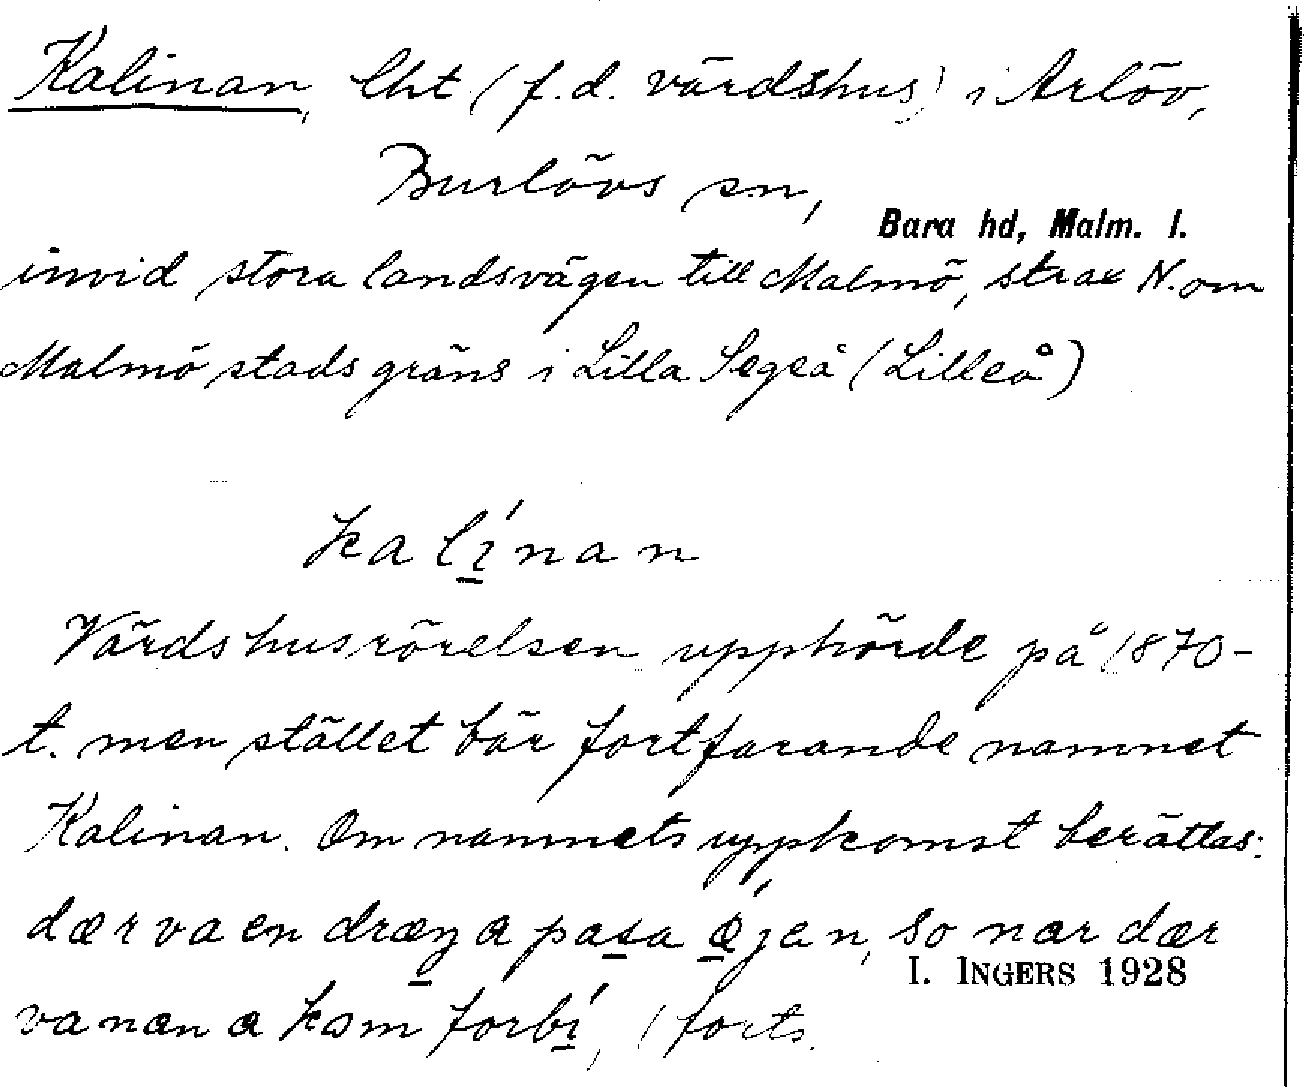 Kalinan, lht (f.d. värdshus) i Arlöv,
Burlövs sn,
Bara hd, Malm. l.
invid stora landsvägen till Malmö, strax N. om
Malmö stads gräns i Lilla Segeå (Lilleå)
kalínan
Värdshusrörelsen upphörde på 1870-
t. men stället bär fortfarande namnet
Kalinan. Om namnets uppkomst berättas:
dær va en dræŋ a pasa ǿjen, so nær dær
I. INGERS 1928
va nøn a kom forbí, (forts.